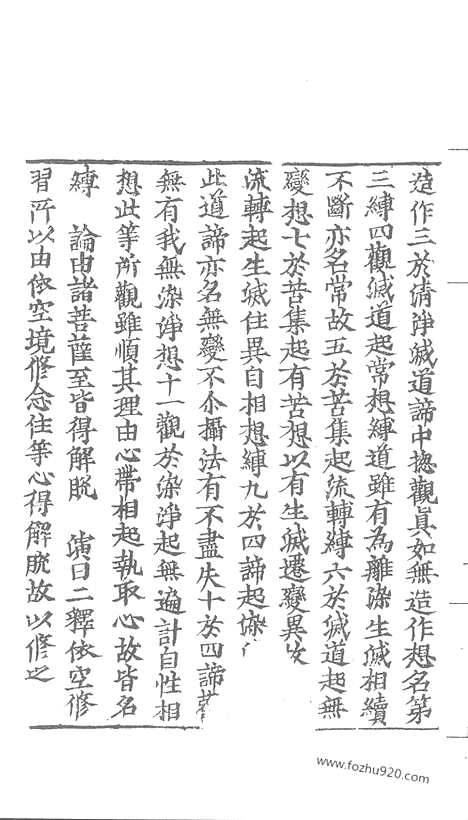 造作三於清淨滅道諦中揔觀真如無造作想名第
三縛四觀滅道起常想縛道雖有為離染生滅相續
不斷亦名常故五於苦集起流轉縛六於滅道起無
變想七於苦集起有苦想以有生滅遷變異
流轉起生滅住異自相想縛九於四諦起
此道諦亦名無變不尒攝法有不盡失十於四諦
無有我無染淨想十一觀於染淨起無遍計自性相
想此等所觀雖順其理由心帶相起執取心故皆名
縛 論由諸菩薩至皆得解脫 演曰二釋依空修
習所以由依空境修念住等心得解脫故以修之
www.fozhu920.com